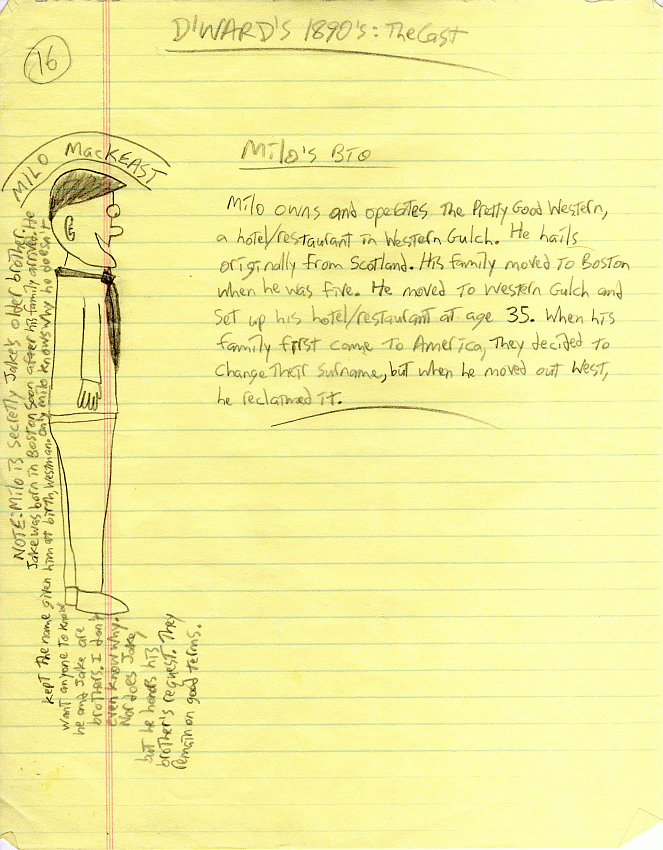 D'WARD'S 1890's: The Cast
16
MILO MacKEAST
MILO'S BIO
Milo owns and operates the Pretty Good Western,
a hotel/restaurant in Western Gulch. He hails
originally from Scotland. His family moved to Boston
when he was five. He moved to Western Gulch and
set up his hotel/restaurant at age 35. When his
family first came to America, they decided to
change their surname, but when he moved out West,
he reclaimed it.
NOTE: Milo is secretly Jake's older brother.
Jake was born in Boston soon after his family arrived. He
kept the name given him at birth, Westman. Only Milo knows why he doesn't
want anyone to know
he and Jake are
brothers. I don't
even know why.
Nor does Jake,
but he honors his
brother's request. They
remain on good terms.